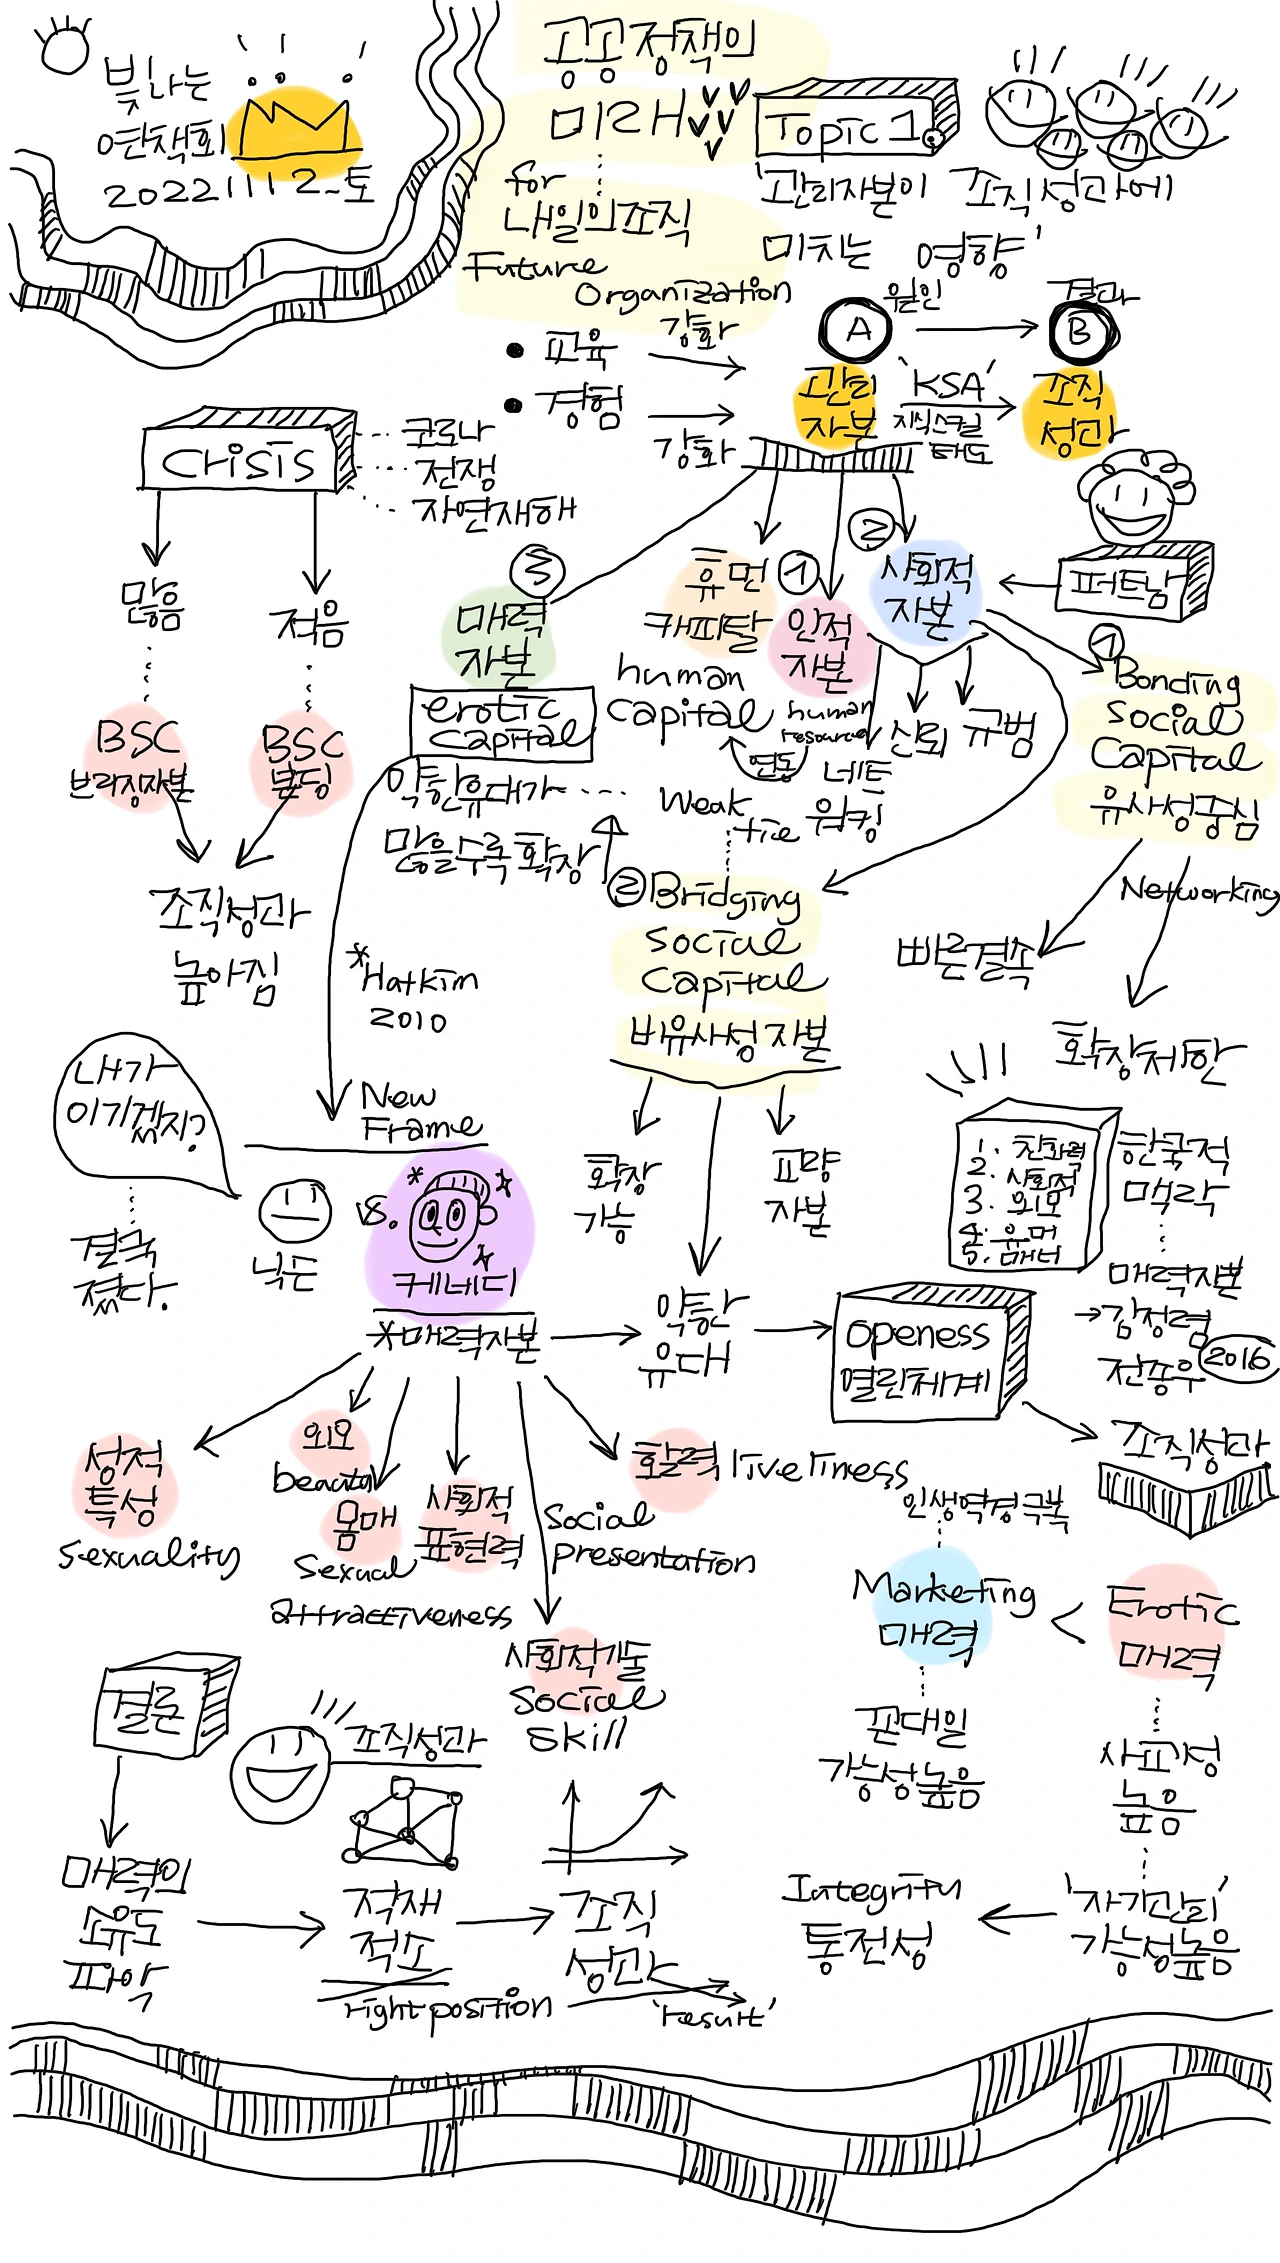 빛나는
연책회
20221112-토
공공정책의
미래
for
내일의조직
Future
Organization
Topic 1.
'관리자본이 조직성과에
미치는 영향'
원인
결과
A
B
• 교육
강화
• 경험
강화
관리
자본
'KSA'
지식스킬
태도
조직
성과
CRISIS
코로나
전쟁
자연재해
많음
적음
BSC
브리징자본
BSC
본딩
조직성과
높아짐
③
매력
자본
erotic
capital
약한유대가
많을수록확장
휴먼
캐피탈
human
capital
①
인적
자본
human
resource
연동
②
사회적
자본
퍼트남
네트
워킹
신뢰
규범
Weak
tie
①
Bonding
Social
Capital
유사성중심
Networking
빠른결속
확장제한
② Bridging
Social
Capital
비유사성 자본
확장
가능
교량
자본
*Hatkim
2010
New
Frame
내가
이기겠지?
결국
졌다.
닉슨
vs.
케네디
*매력자본
약한
유대
openess
열린체계
조직성과
1. 친화력
2. 사회적
3. 외모
4. 유머
5. 매너
한국적
맥락
매력자본
→김정렴
전승우
2016
성적
특성
sexuality
외모
beauty
몸매
Sexual
attractiveness
사회적
표현력
Social
presentation
활력 liveliness
사회적기술
Social
Skill
인생역경극복
Marketing
매력
<
Erotic
매력
꼰대일
가능성높음
사교성
높음
'자기관리'
가능성높음
Integrity
통전성
결론
조직성과
매력의
유도
파악
적재
적소
right position
조직
성과
'result'